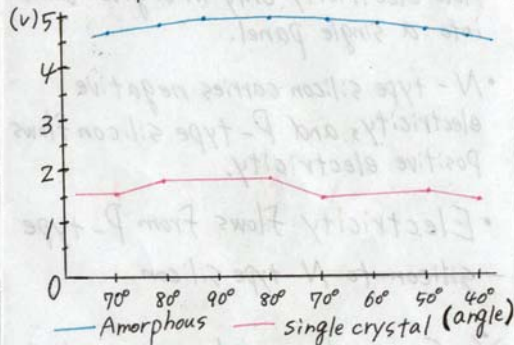 (v) 5
4
3
2
1
0
70° 80° 90° 80° 70° 60° 50° 40° (angle)
Amorphous single crystal